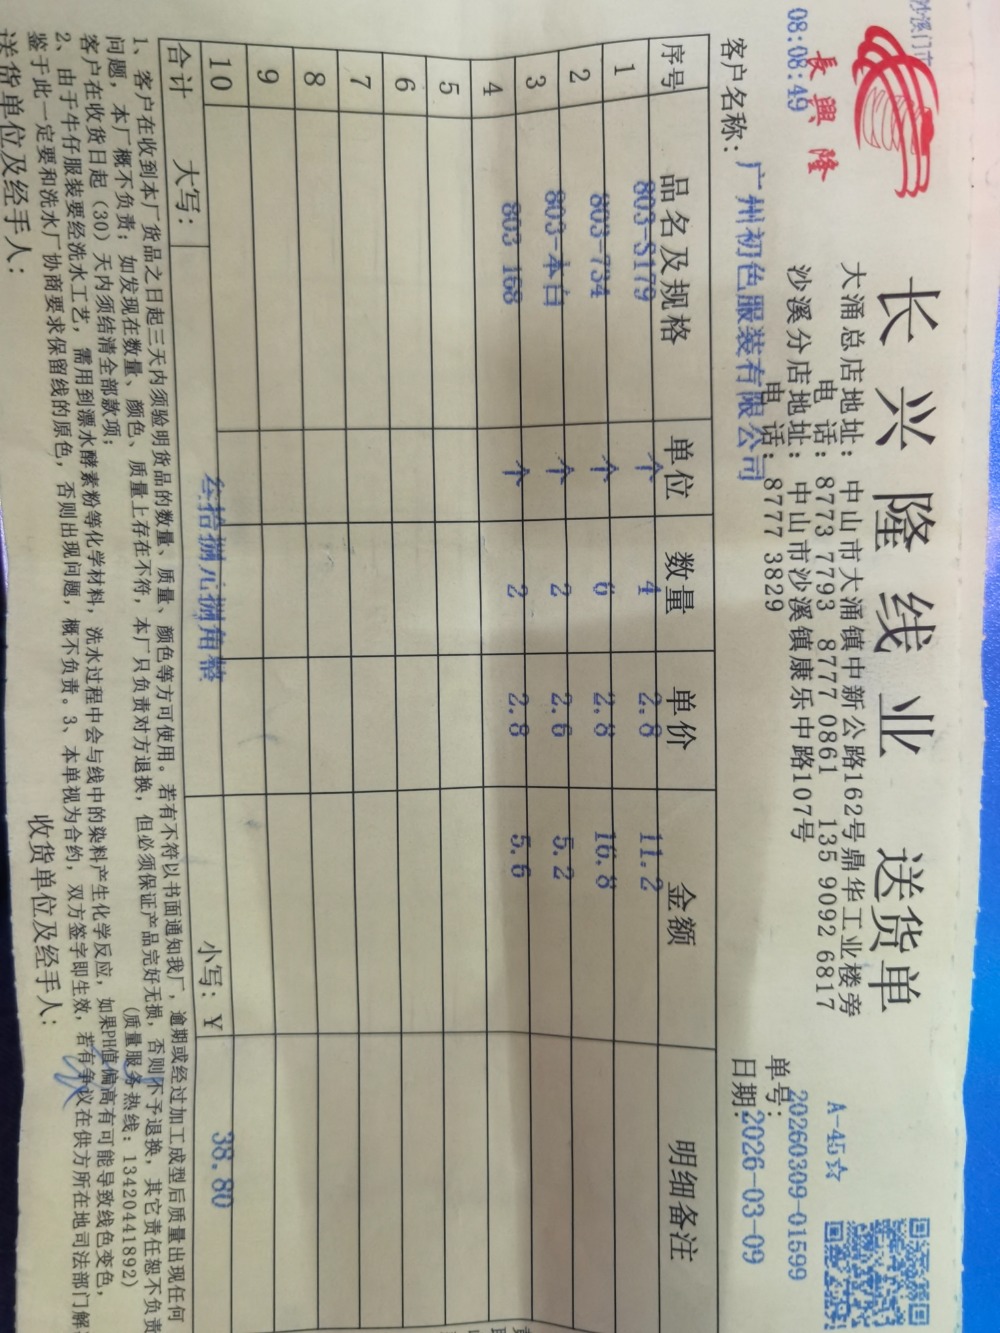 沙溪门市
08:08:49
長興隆
长兴隆线业 送货单
大涌总店地址：中山市大涌镇中新公路162号鼎华工业楼旁
电 话：8773 7793 8777 0861 135 9092 6817
沙溪分店地址：中山市沙溪镇康乐中路107号
电 话：8777 3829
A-45☆
单号：20260309-01599
客户名称：广州初色服装有限公司
日期：2026-03-09
序号 品名及规格 单位 数量 单价 金额 明细备注
1 803-S179 个 4 2.8 11.2
2 803-734 个 6 2.8 16.8
3 803-本白 个 2 2.6 5.2
4 803 168 个 2 2.8 5.6
5
6
7
8
9
10
合计 大写：叁拾捌元捌角整 小写：¥ 38.80
1、客户在收到本厂货品之日起三天内须验明货品的数量、质量、颜色等方可使用。若有不符以书面通知我厂，逾期或经过加工成型后质量出现任何
问题，本厂概不负责；如发现在数量、颜色、质量上存在不符，本厂只负责对方退换，但必须保证产品完好无损，否则不予退换，其它责任恕不负责
客户在收货日起（30）天内须结清全部款项； （质量服务热线：13420441892）
2、由于牛仔服装要经洗水工艺，需用到漂水酵素粉等化学材料，洗水过程中会与线中的染料产生化学反应，如果PH值偏高有可能导致线色变色，
鉴于此一定要和洗水厂协商要求保留线的原色，否则出现问题，概不负责。3、本单视为合约，双方签字即生效，若有争议在供方所在地司法部门解
送货单位及经手人： 收货单位及经手人：